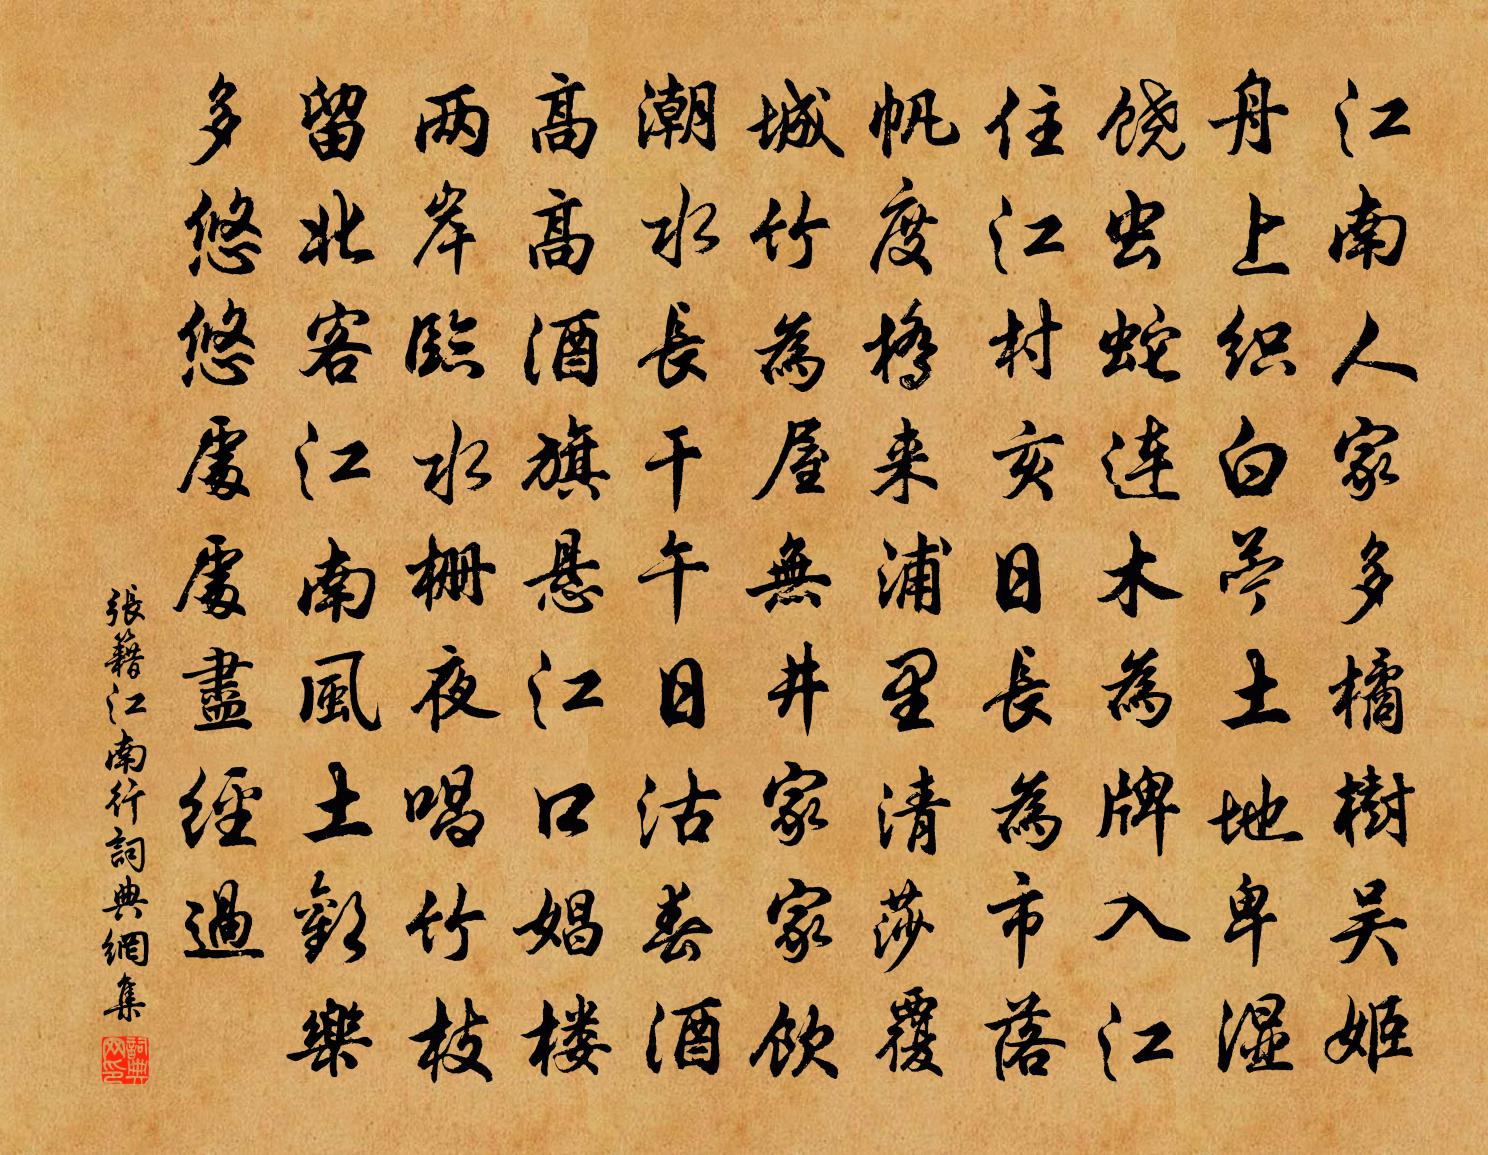 江南人家多橘樹吴姬
舟上织白苧土地卑湿
饶虫蛇连木為牌入江
住江村亥日長為市落
帆度橋来浦里清莎覆
城竹為屋無井家家饮
潮水長干午日沽春酒
高高酒旗悬江口娼楼
两岸臨水栅夜唱竹枝
留北客江南風土歡樂
多悠悠處處盡經過
張籍江南行詞典網集
詞典网印